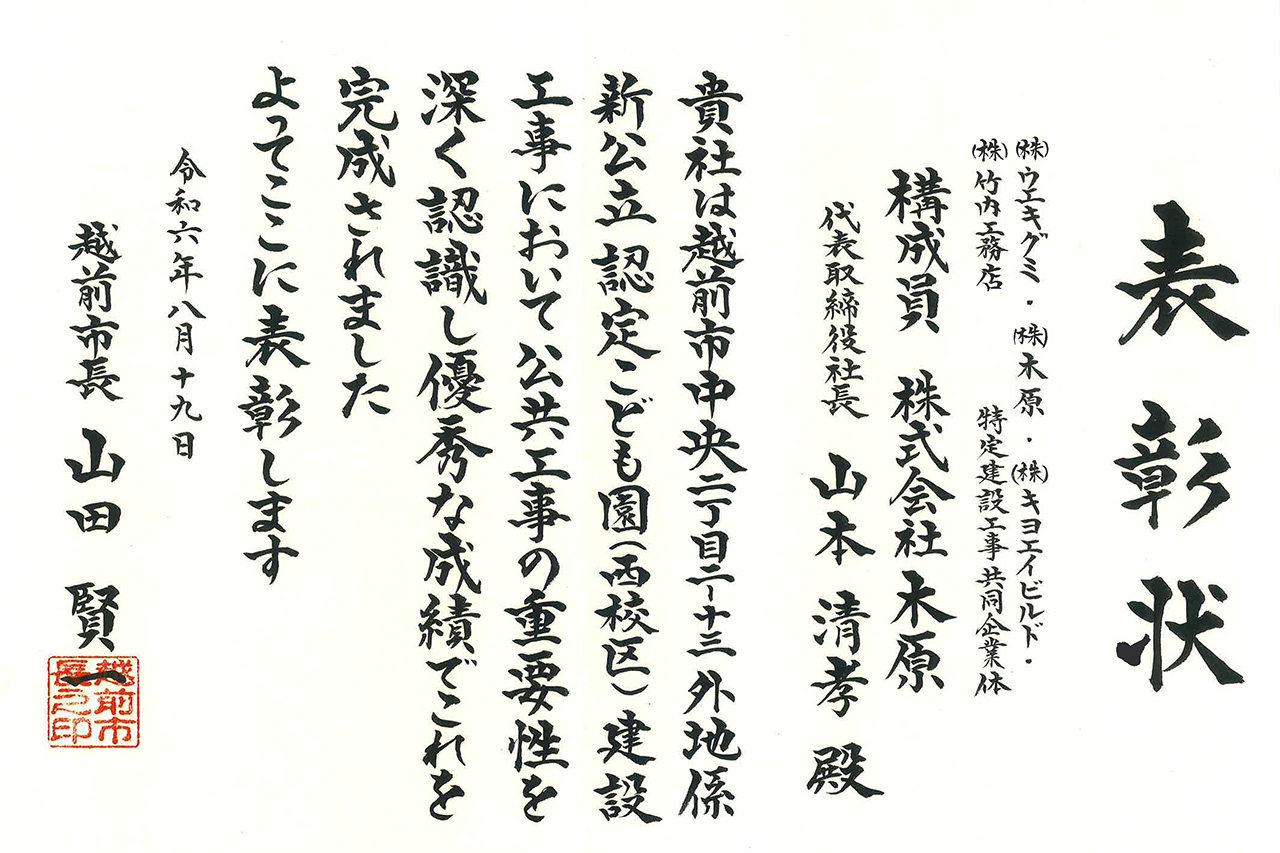 表彰状
㈱ウエキグミ・㈱木原・㈱キヨエイビルド・
㈱竹内工務店　特定建設工事共同企業体
構成員　株式会社木原
代表取締役社長　山本　清孝　殿
貴社は越前市中央二丁目二ー十三外地係
新公立認定こども園(西校区)建設
工事において公共工事の重要性を
深く認識し優秀な成績でこれを
完成されました
よってここに表彰します
令和六年八月十九日
越前市長　山田　賢一
越前市
長之印